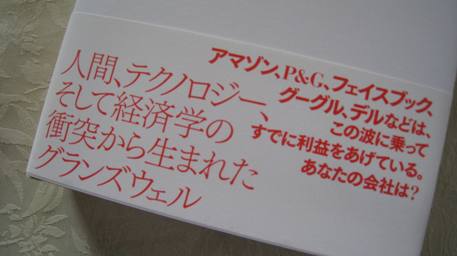 アマゾン、P&G、フェイスブック、
グーグル、デルなどは、
この波に乗って
すでに利益をあげている。
あなたの会社は?
人間、テクノロジー、
そして経済学の
衝突から生まれた
グランズウェル